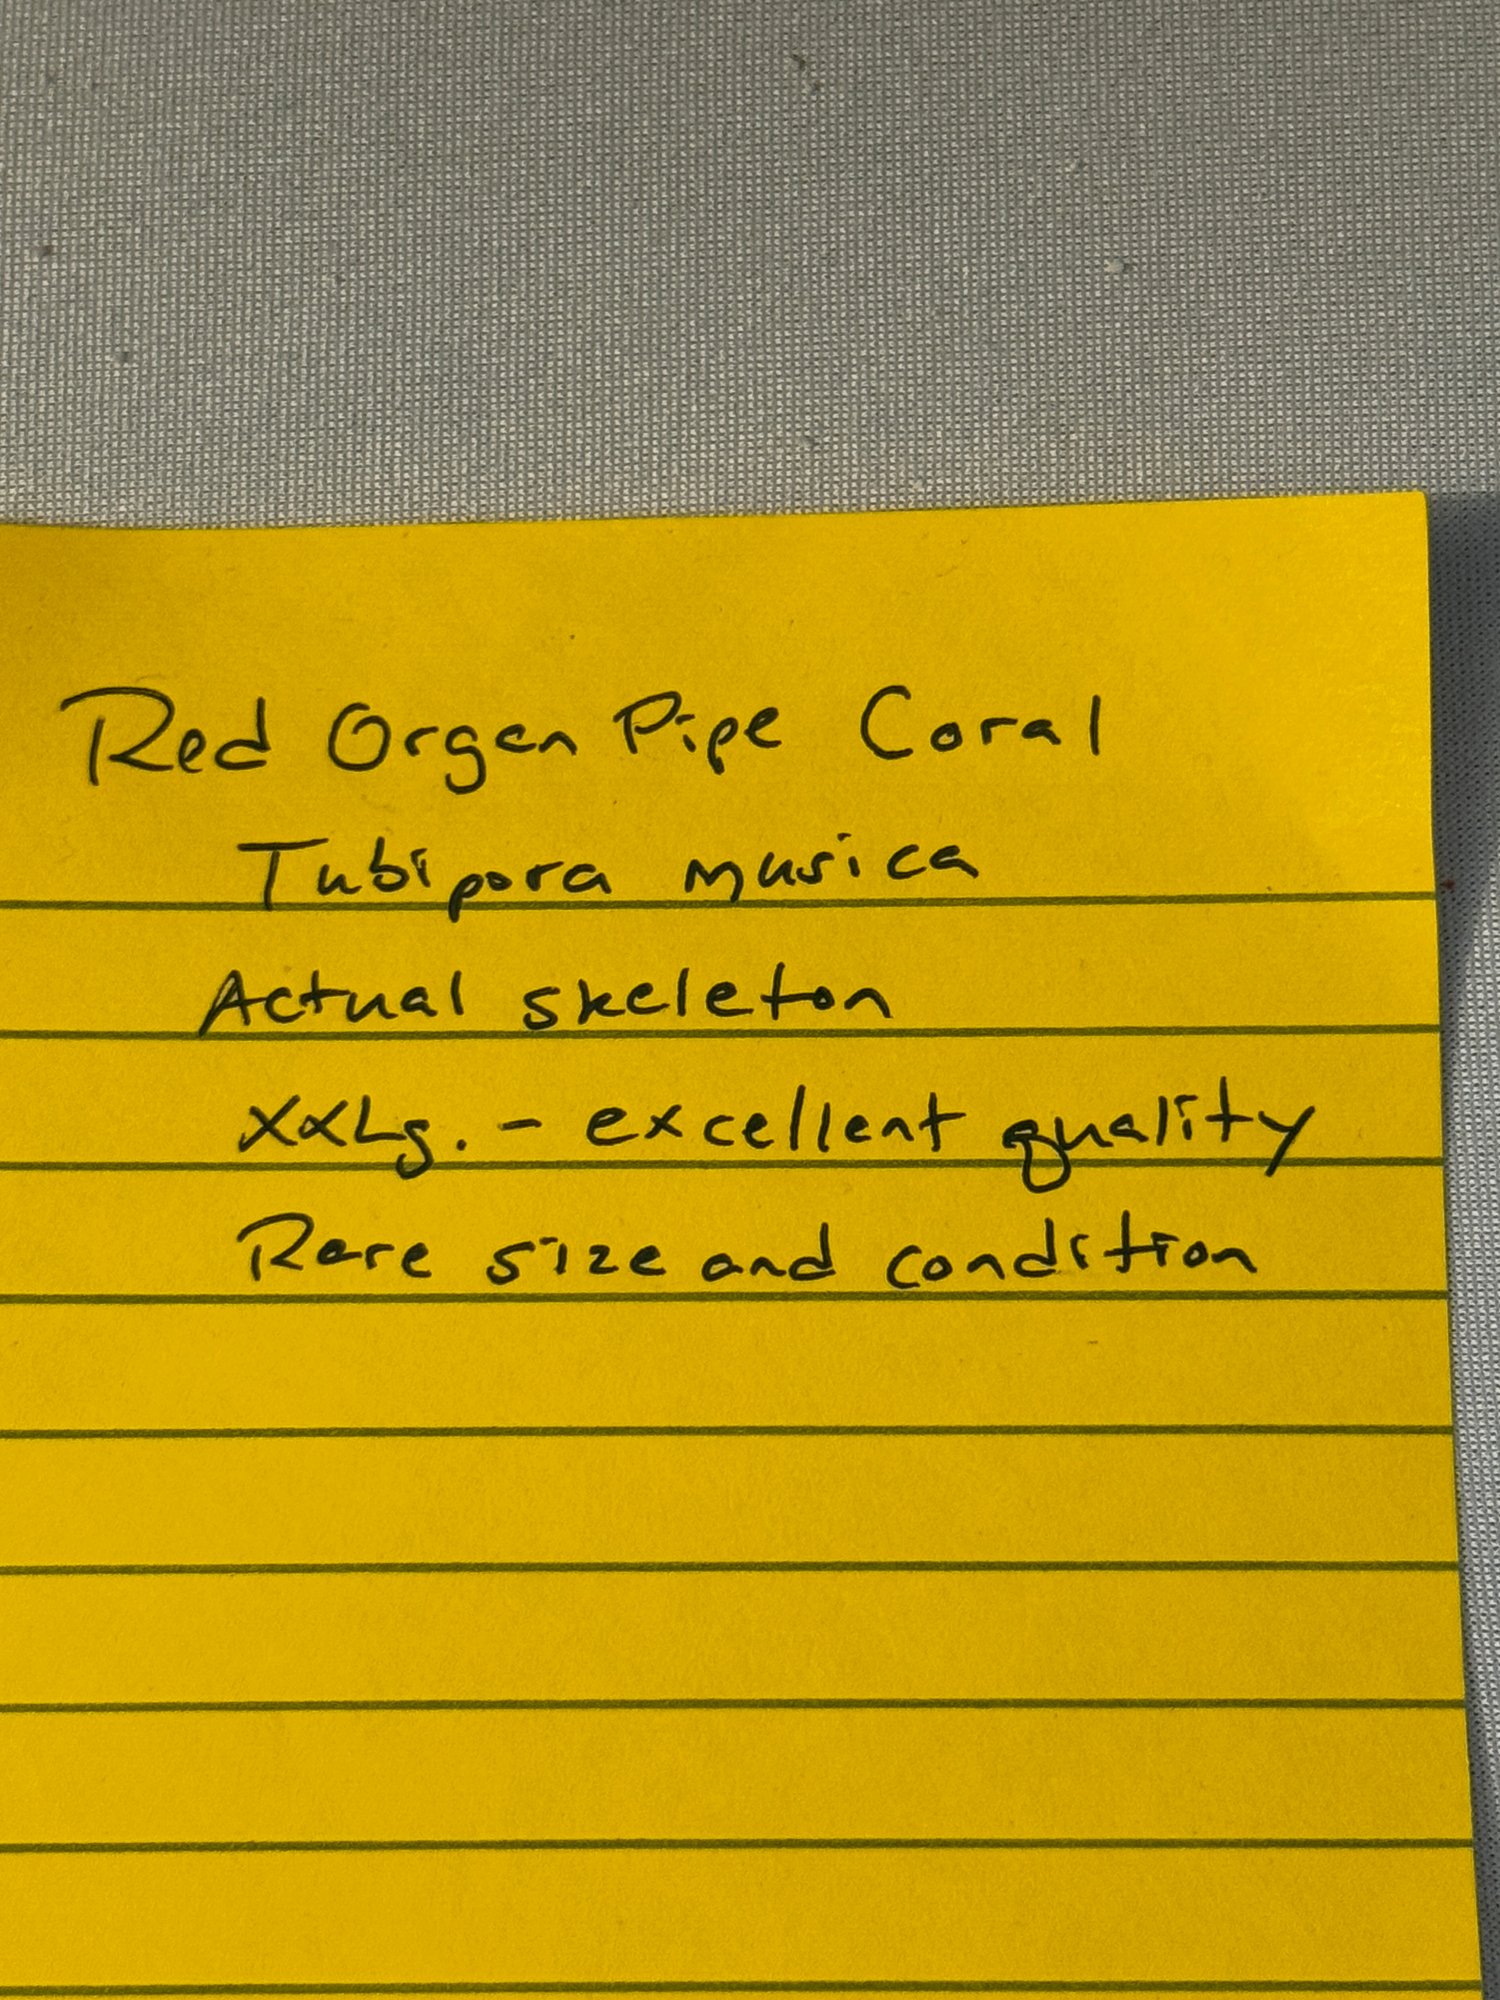 Red Organ Pipe Coral
Tubipora musica
Actual skeleton
XXLg. - excellent quality
Rare size and condition